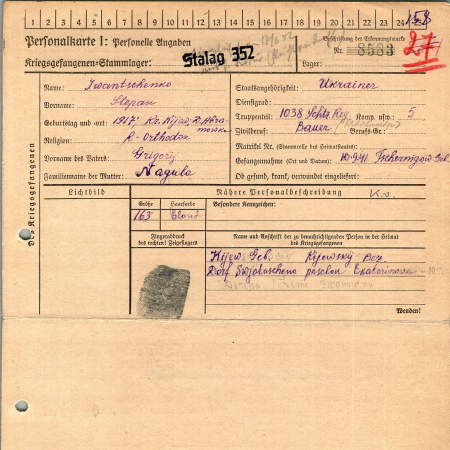 1 2 3 4 5 6 7 8 9 10 11 12 13 14 15 16 17 18 19 20 21 22 23 24 25
Personalkarte I: Personelle Angaben
Kriegsgefangenen-Stammlager: Stalag 352
Beschriftung der Erkennungsmarke
Nr. 8583
Lager:
27
Des Kriegsgefangenen
Name: Iwantschenko
Vorname: Stepan
Geburtstag und -ort: 1917, Kr. Kijew, D. Abramowka
Religion: R-Orthodox
Vorname des Vaters: Grigorij
Familienname der Mutter: Nagula
Staatsangehörigkeit: Ukrainer
Dienstgrad:
Truppenteil: 1038 Schtz. Reg. Komp. usw.: 5
Zivilberuf: Bauer Berufs-Gr.:
Matrikel Nr. (Stammrolle des Heimatstaates):
Gefangennahme (Ort und Datum): 10.9.41. Tschernigow Geb.
Ob gesund, krank, verwundet eingeliefert:
Lichtbild
Nähere Personalbeschreibung
Größe
Haarfarbe
Besondere Kennzeichen:
163
Blond
Fingerabdruck
des rechten! Zeigefingers
Name und Anschrift der zu benachrichtigenden Person in der Heimat
des Kriegsgefangenen
Kijew Geb. Kijewskij Bez.
Dorf
Wenden!